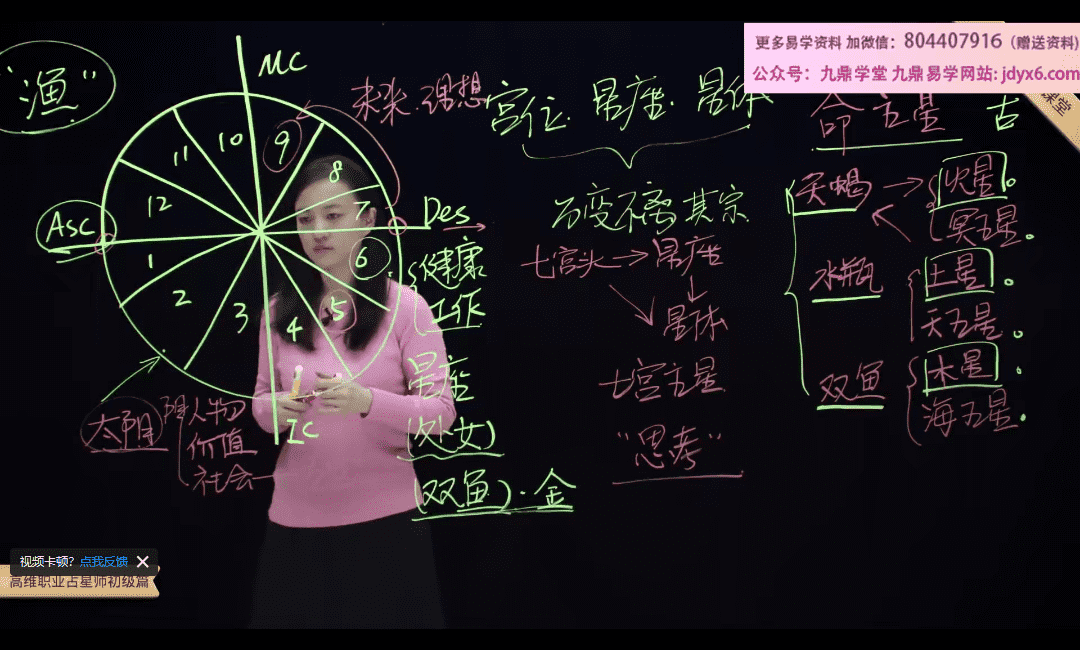 更多易学资料 加微信：804407916（赠送资料)
公众号：九鼎学堂 九鼎易学网站: jdyx6.com
课堂
"渔"
MC
未来·理想
宫位. 星座. 星体
命 主星
古
9
10
11
12
8
7
Asc
Des
1
2
3
4
5
6
IC
健康
工作
星座
(处女)
(双鱼)·金
太阳
阳人物
价值
社会一
万变不离其宗
七宫头→星座
星体
七宫主星
"思考"
天蝎
火星。
冥王星。
水瓶
土星。
天王星。
双鱼
木星。
海王星.
视频卡顿? 点我反馈
高维职业占星师初级篇